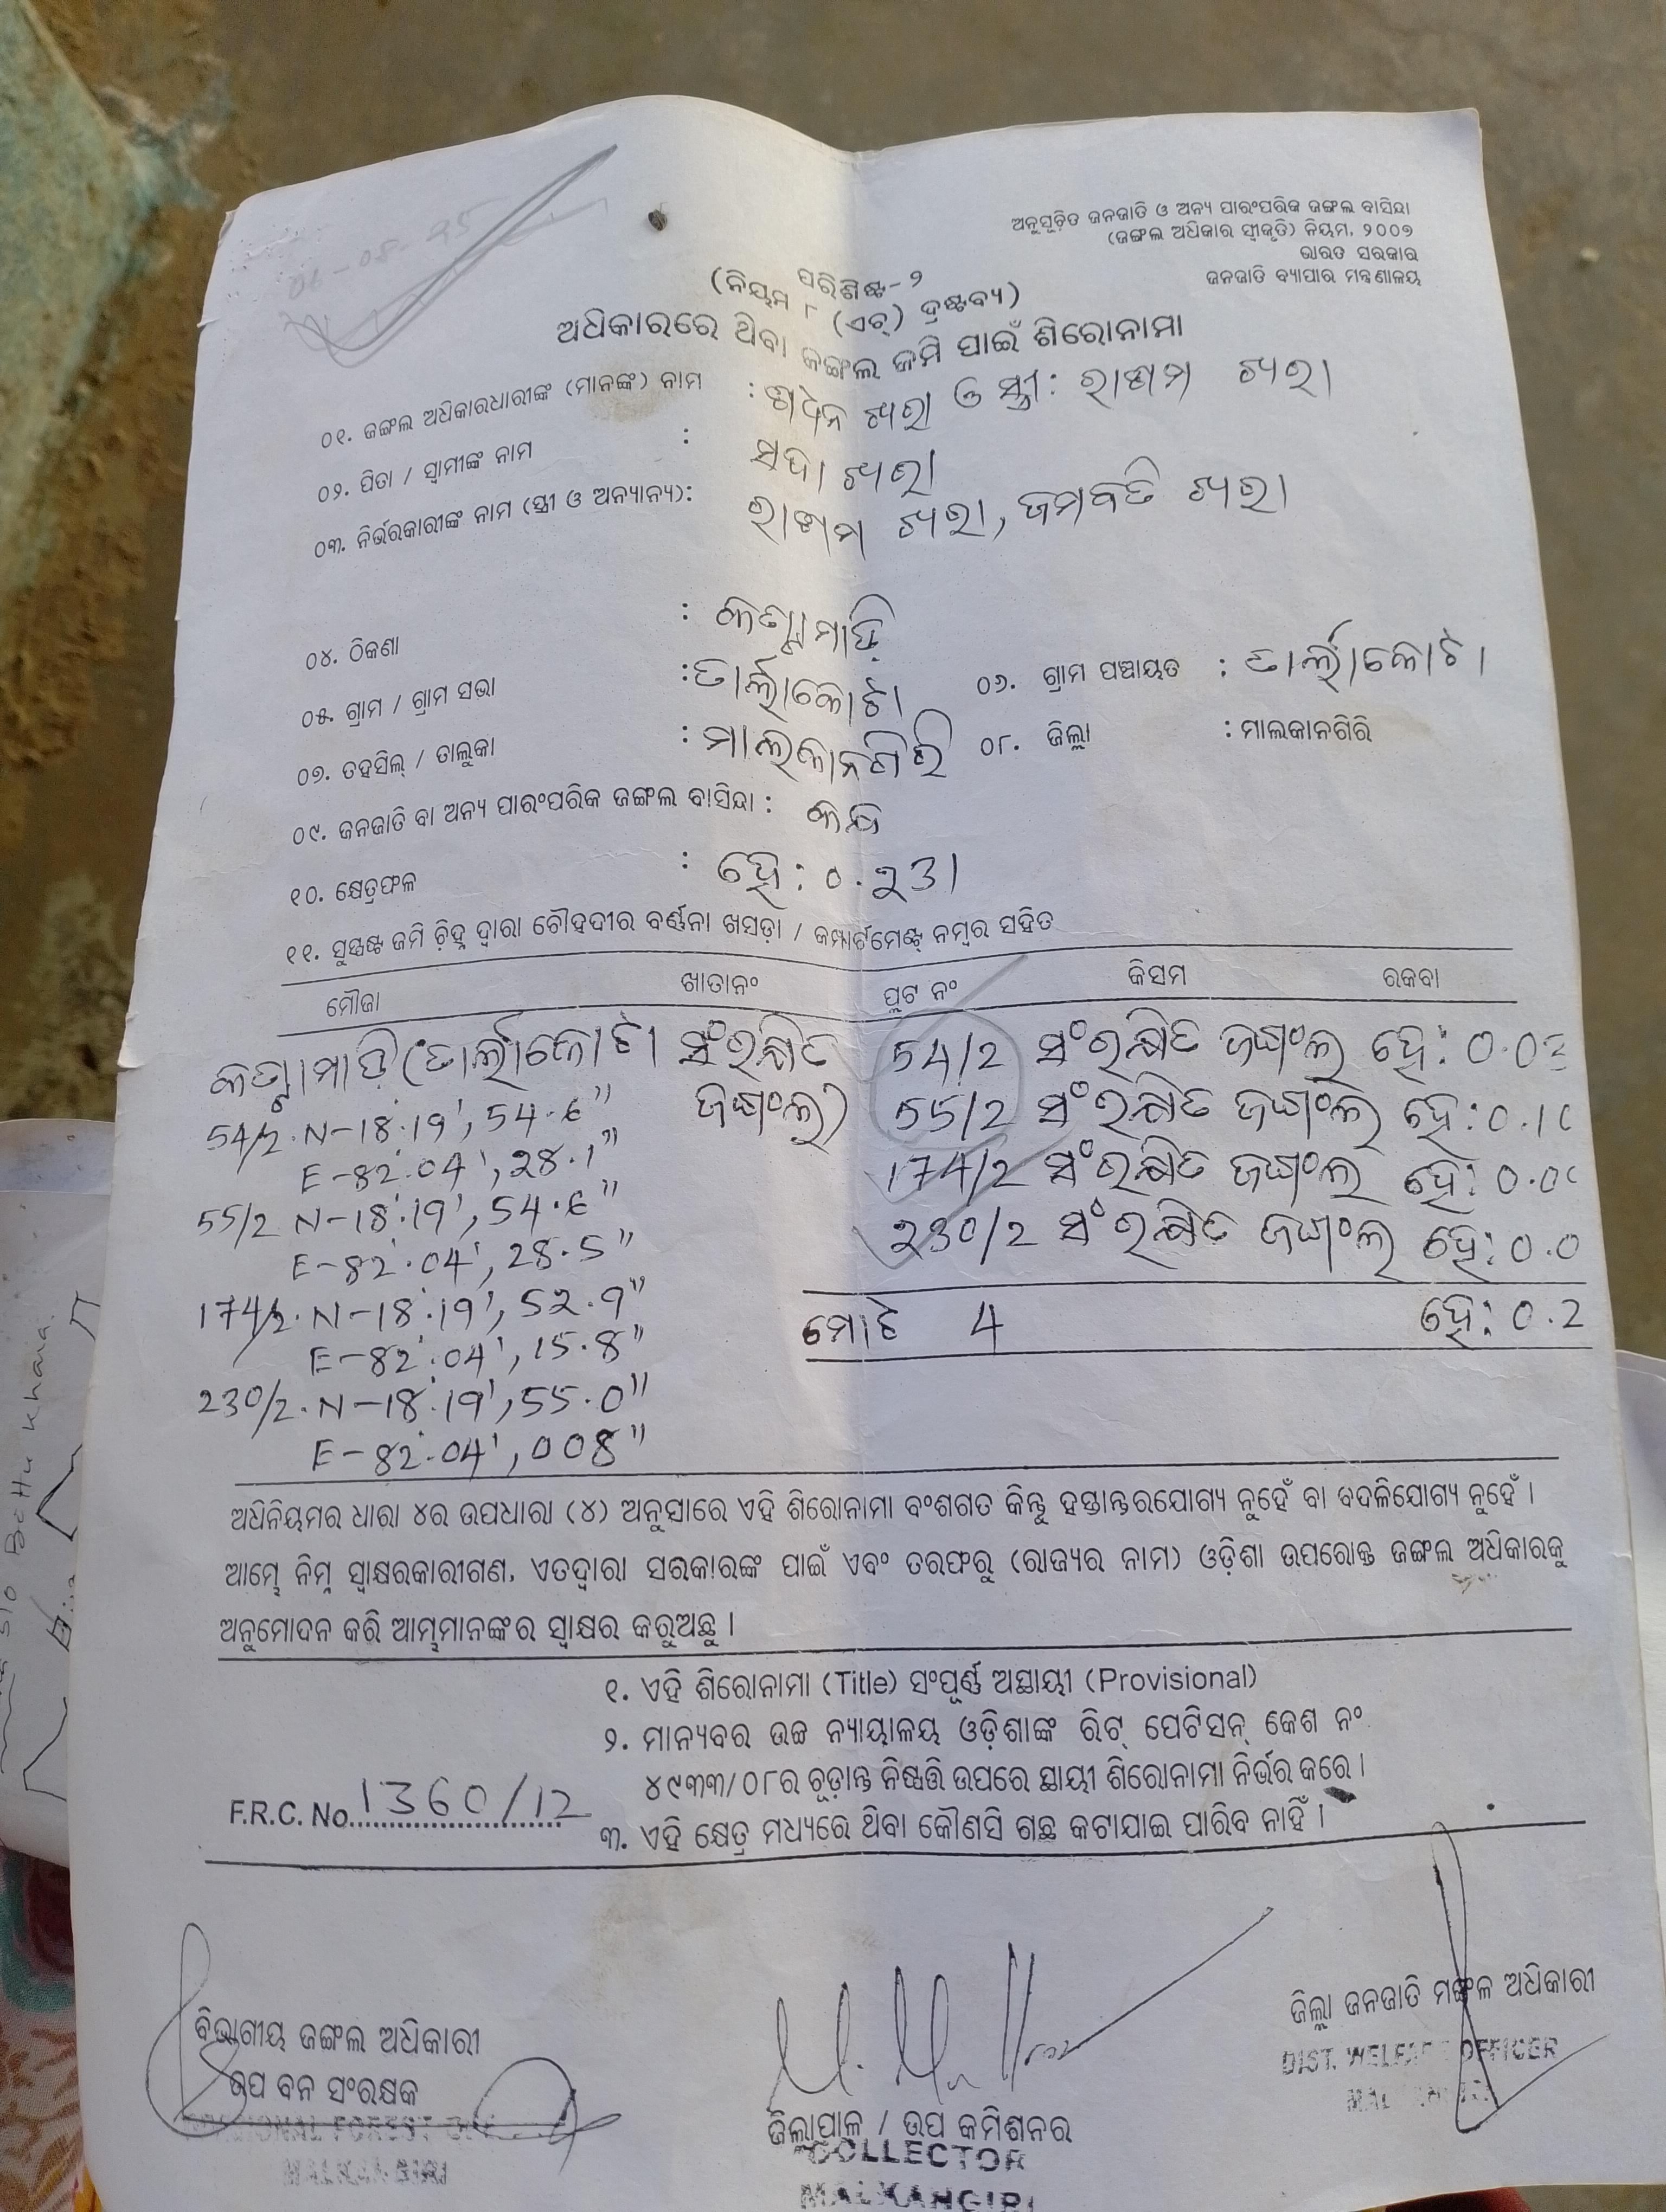 ଅନୁସୂଚିତ ଜନଜାତି ଓ ଅନ୍ୟ ପାରଂପରିକ ଜଙ୍ଗଲ ବାସିନ୍ଦା
(ଜଙ୍ଗଲ ଅଧିକାର ସ୍ୱୀକୃତି) ନିୟମ, ୨୦୦୭
ଭାରତ ସରକାର
ଜନଜାତି ବ୍ୟାପାର ମନ୍ତ୍ରଣାଳୟ
ପରିଶିଷ୍ଟ-୨
(ନିୟମ ୮ (ଏଚ୍) ଦ୍ରଷ୍ଟବ୍ୟ)
ଅଧିକାରରେ ଥିବା ଜଙ୍ଗଲ ଜମି ପାଇଁ ଶିରୋନାମା
୦୧. ଜଙ୍ଗଲ ଅଧିକାରଧାରୀଙ୍କ (ମାନଙ୍କ) ନାମ : ଖରା ଓ ସ୍ତ୍ରୀ: ଖରା
୦୨. ପିତା / ସ୍ୱାମୀଙ୍କ ନାମ : ସଦା ଖରା
୦୩. ନିର୍ଭରକାରୀଙ୍କ ନାମ (ସ୍ତ୍ରୀ ଓ ଅନ୍ୟାନ୍ୟ): ଖରା, ଜମବତି ଖରା
୦୪. ଠିକଣା :
୦୫. ଗ୍ରାମ / ଗ୍ରାମ ସଭା : ତାର୍ଲାକୋଟା ୦୬. ଗ୍ରାମ ପଞ୍ଚାୟତ : ତାର୍ଲାକୋଟା
୦୭. ତହସିଲ୍ / ତାଲୁକା : ମାଲକାନଗିରି ୦୮. ଜିଲ୍ଲା : ମାଲକାନଗିରି
୦୯. ଜନଜାତି ବା ଅନ୍ୟ ପାରଂପରିକ ଜଙ୍ଗଲ ବାସିନ୍ଦା :
୧୦. କ୍ଷେତ୍ରଫଳ : ହେ: 0.231
୧୧. ସୁସ୍ପଷ୍ଟ ଜମି ଚିହ୍ନ ଦ୍ୱାରା ଚୌହଦୀର ବର୍ଣ୍ଣନା ଖସଡ଼ା / କମ୍ପାର୍ଟମେଣ୍ଟ୍ ନମ୍ବର ସହିତ
ମୌଜା ଖାତାନଂ ପ୍ଲଟ ନଂ କିସମ ରକବା
(ତାର୍ଲାକୋଟା ସଂରକ୍ଷିତ 54/2 ସଂରକ୍ଷିତ ଜଙ୍ଗଲ ହେ: 0.03
54/2. N-18°.19', 54.6" ଜଙ୍ଗଲ) 55/2 ସଂରକ୍ଷିତ ଜଙ୍ଗଲ ହେ: 0.10
E-82°.04', 28.1" 174/2 ସଂରକ୍ଷିତ ଜଙ୍ଗଲ ହେ: 0.0
55/2 N-18°.19', 54.6" 230/2 ସଂରକ୍ଷିତ ଜଙ୍ଗଲ ହେ: 0.0
E-82°.04', 28.5"
174/2. N-18°.19', 52.9" ମୋଟ 4 ହେ: 0.2
E-82°.04', 15.8"
230/2. N-18°.19', 55.0"
E-82°.04', 008"
ଅଧିନିୟମର ଧାରା ୪ର ଉପଧାରା (୪) ଅନୁସାରେ ଏହି ଶିରୋନାମା ବଂଶଗତ କିନ୍ତୁ ହସ୍ତାନ୍ତରଯୋଗ୍ୟ ନୁହେଁ ବା ବଦଳିଯୋଗ୍ୟ ନୁହେଁ ।
ଆମ୍ଭେ ନିମ୍ନ ସ୍ୱାକ୍ଷରକାରୀଗଣ, ଏତଦ୍ୱାରା ସରକାରଙ୍କ ପାଇଁ ଏବଂ ତରଫରୁ (ରାଜ୍ୟର ନାମ) ଓଡ଼ିଶା ଉପରୋକ୍ତ ଜଙ୍ଗଲ ଅଧିକାରକୁ
ଅନୁମୋଦନ କରି ଆମ୍ଭମାନଙ୍କର ସ୍ୱାକ୍ଷର କରୁଅଛୁ ।
୧. ଏହି ଶିରୋନାମା (Title) ସଂପୂର୍ଣ୍ଣ ଅସ୍ଥାୟୀ (Provisional)
୨. ମାନ୍ୟବର ଉଚ୍ଚ ନ୍ୟାୟାଳୟ ଓଡ଼ିଶାଙ୍କ ରିଟ୍ ପେଟିସନ୍ କେଶ ନଂ
୪୯୩୩/୦୮ର ଚୂଡ଼ାନ୍ତ ନିଷ୍ପତ୍ତି ଉପରେ ସ୍ଥାୟୀ ଶିରୋନାମା ନିର୍ଭର କରେ ।
F.R.C. No. 1360/12
୩. ଏହି କ୍ଷେତ୍ର ମଧ୍ୟରେ ଥିବା କୌଣସି ଗଛ କଟାଯାଇ ପାରିବ ନାହିଁ ।
ବିଭାଗୀୟ ଜଙ୍ଗଲ ଅଧିକାରୀ
ଉପ ବନ ସଂରକ୍ଷକ
ଜିଲ୍ଲାପାଳ / ଉପ କମିଶନର
COLLECTOR
MALKANGIRI
ଜିଲ୍ଲା ଜନଜାତି ମଙ୍ଗଳ ଅଧିକାରୀ
DIST. WELFARE OFFICER
MALKANGIRI
S/O Bettu Khara.